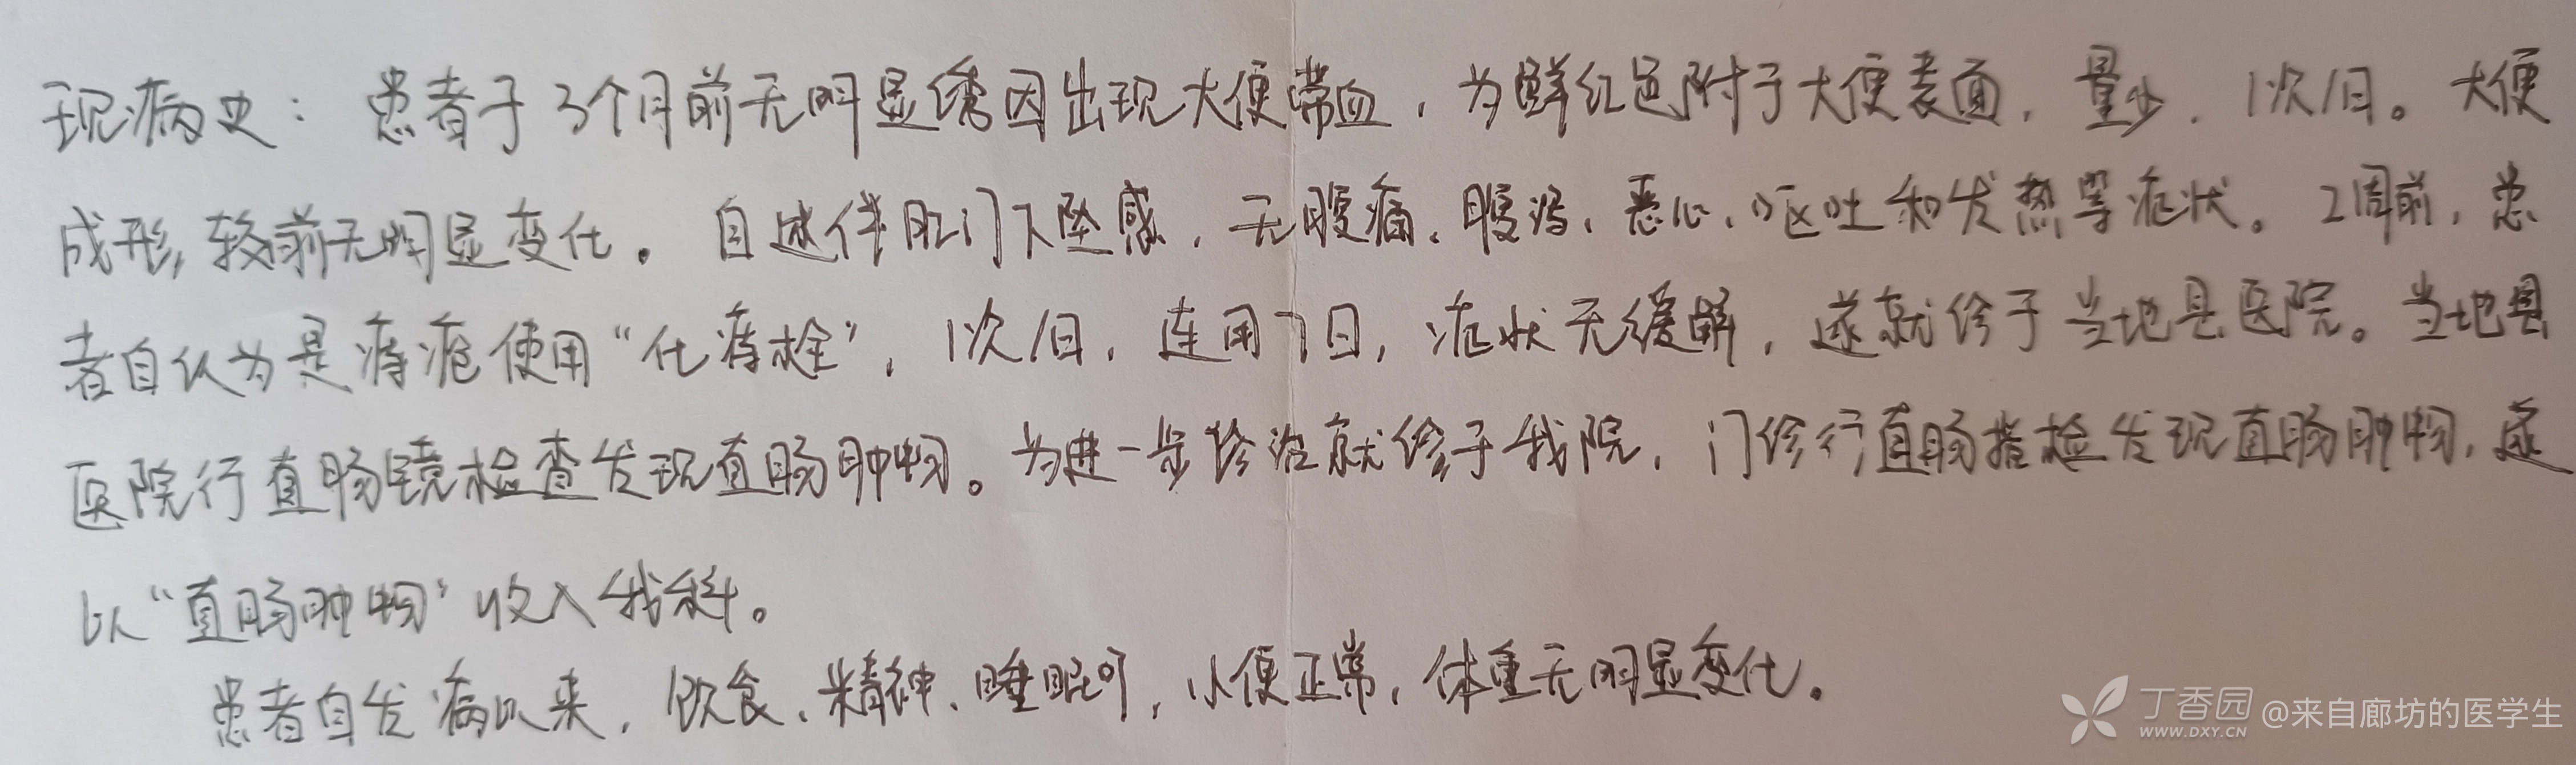 现病史：患者于3个月前无明显诱因出现大便带血，为鲜红色附于大便表面，量少，1次/日。大便
成形，较前无明显变化。自述伴肛门下坠感，无腹痛、腹泻、恶心、呕吐和发热等症状。2周前，患
者自认为是痔疮使用“化痔栓”，1次/日，连用7日，症状无缓解，遂就诊于当地县医院。当地县
医院行直肠镜检查发现直肠肿物。为进一步诊治就诊于我院，门诊行直肠指检发现直肠肿物，遂
以“直肠肿物”收入我科。
患者自发病以来，饮食、精神、睡眠可，小便正常，体重无明显变化。
丁香园 @来自廊坊的医学生
WWW.DXY.CN